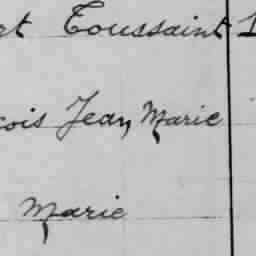 et Toussaint 1
çois Jean, Marie
Marie